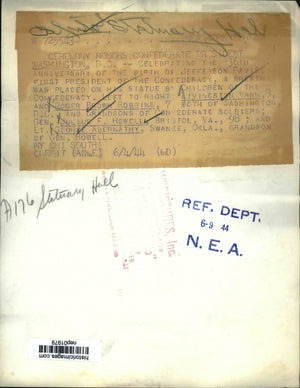 Statuary Hall
# 725543
CEREMONY HONORS CONFEDERATE PRESIDENT
WASHINGTON, D.C.-- CELEBRATING THE 136TH
ANNIVERSARY OF THE BIRTH OF JEFFERSON DAVIS,
FIRST PRESIDENT OF THE CONFEDERACY, A WREATH
WAS PLACED ON HIS STATUE BY CHILDREN OF THE
CONFEDERACY. TO RIGHT: LIVINGSTON VANN, 9,
AND ROBBINS, 7 BOTH OF WASHINGTON,
D.C. AND GRANDSONS OF CONFEDERATE SOLDIERS;
GEN. HOWELL, BRISTOL, VA., 98; AND
LT. ABERNATHY, SWANEE, OKLA., GRANDSON
OF GEN. HOWELL.
NY CHI SOUTH
CREDIT (ACME) 6/4/44 (WD)
A176 Statuary Hall
REF. DEPT.
6-9 44
N. E. A.
, Inc.
historicimages.com
nep01979